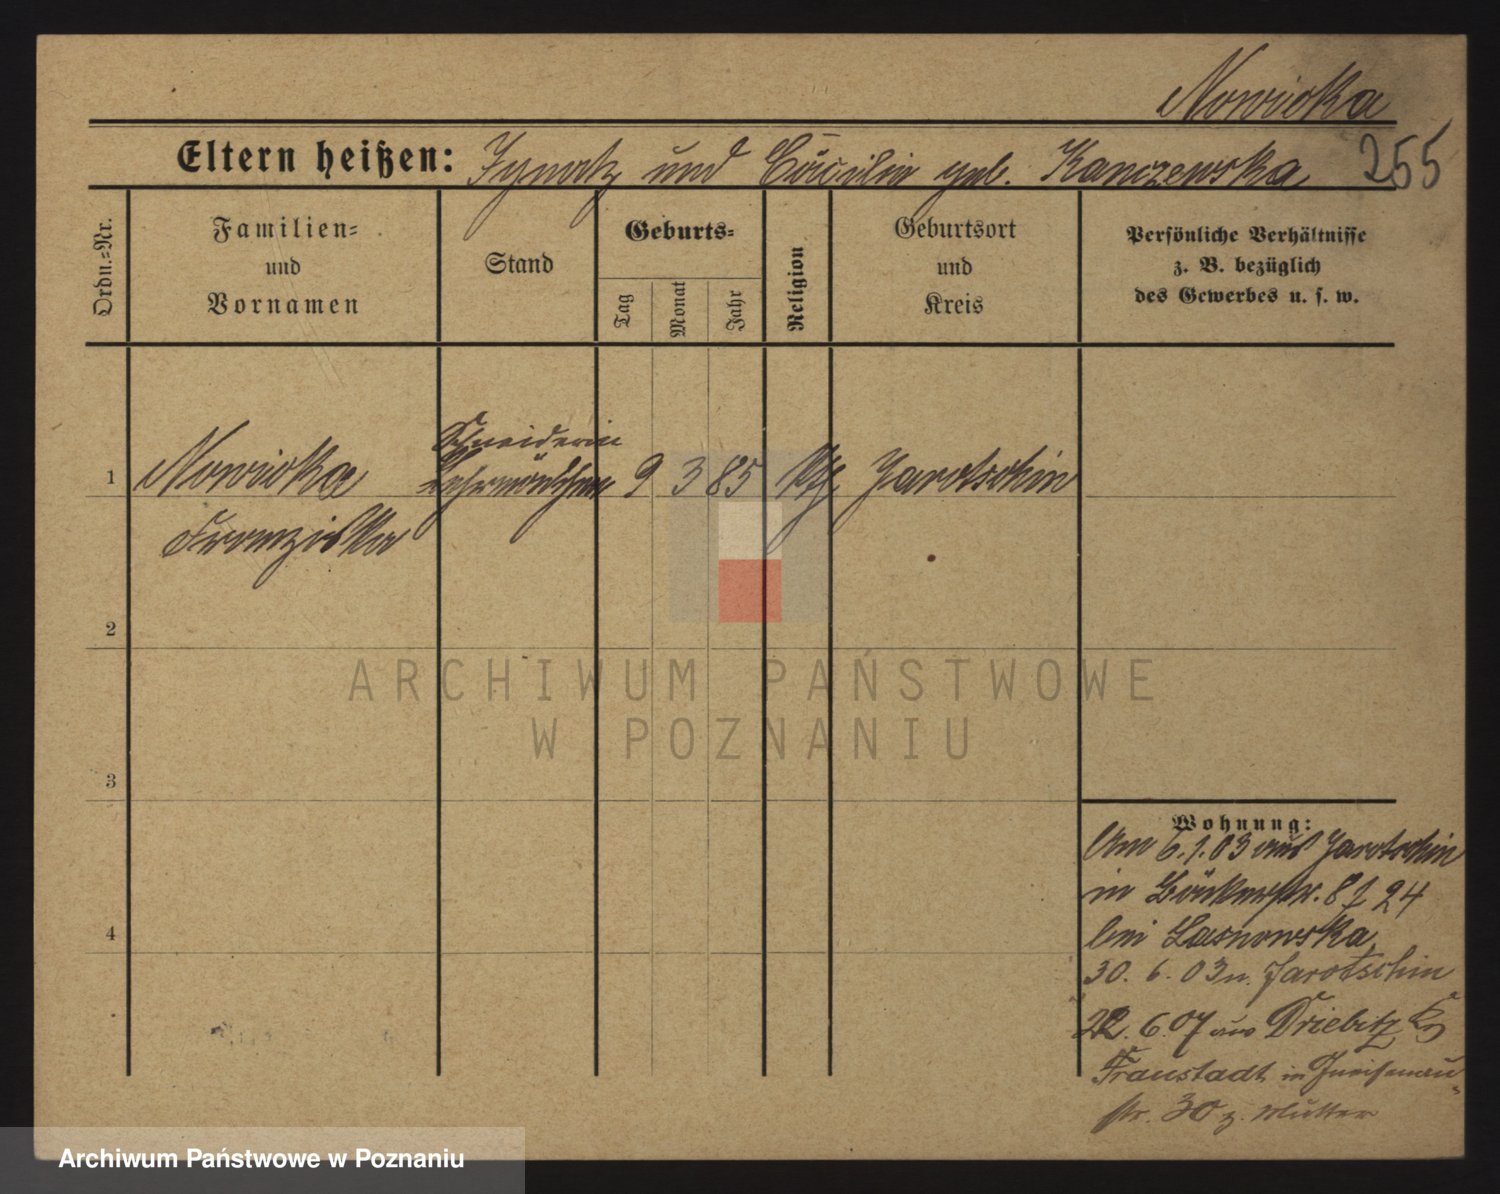 Nowicka
Eltern heißen: Ignatz und Cäcilie geb. Kanczewska 255
Ordn.-Nr.
Familien-
und
Vornamen
Stand
Geburts-
Tag
Monat
Jahr
Religion
Geburtsort
und
Kreis
Persönliche Verhältnisse
z. B. bezüglich
des Gewerbes u. s. w.
Schneiderin
1 Nowicka Lehrmädchen 9 3 85 kth Jarotschin
Franziska
2
3
4
Wohnung:
Am 6.1.03 aus Jarotschin
in Bäckerstr. 8 24
bei Lasnowska
30. 6. 03 n. Jarotschin
22. 6. 07 aus Driebitz Krs
Fraustadt in Gneisenau
str. 30 z. Mutter
ARCHIWUM PAŃSTWOWE
W POZNANIU
Archiwum Państwowe w Poznaniu